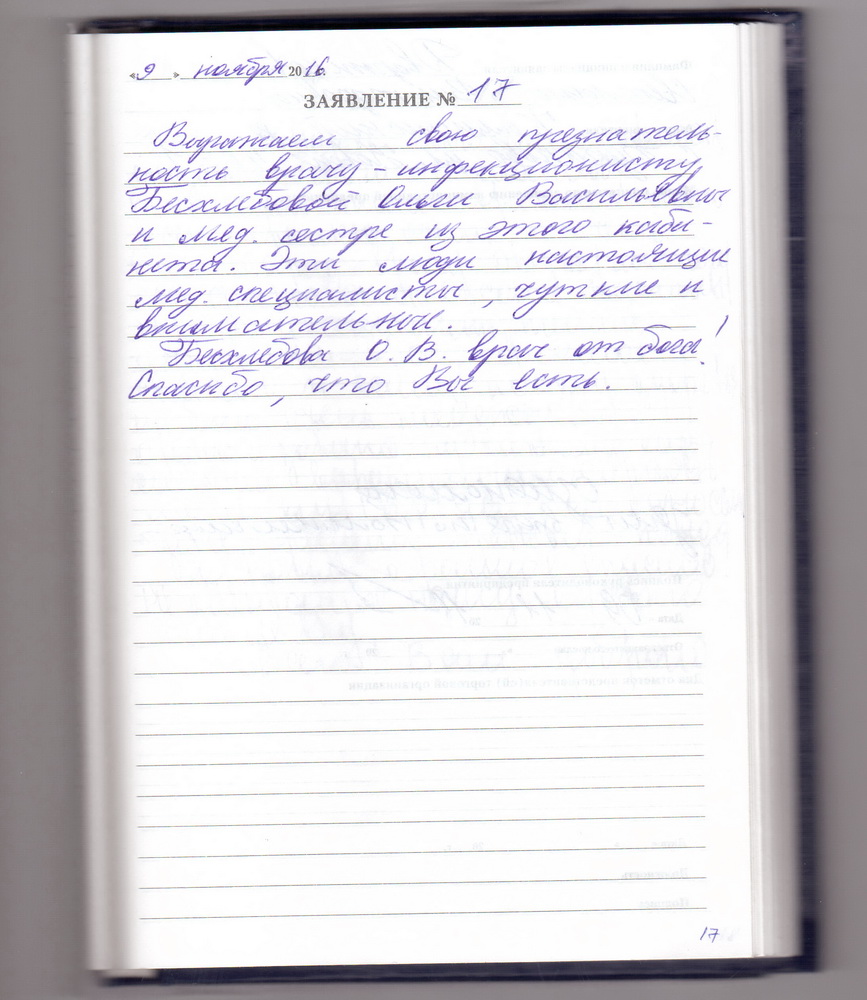 «9» ноября 2016.
ЗАЯВЛЕНИЕ № 17
Выражаем свою презнатель-
ность врачу-инфекционисту
Бесхлебовой Ольги Васильевны
и мед. сестре из этого каби-
нета. Эти люди настоящие
мед. специалисты, чуткие и
внимательные.
Бесхлебова О. В. врач от бога!
Спасибо, что Вы есть.
17